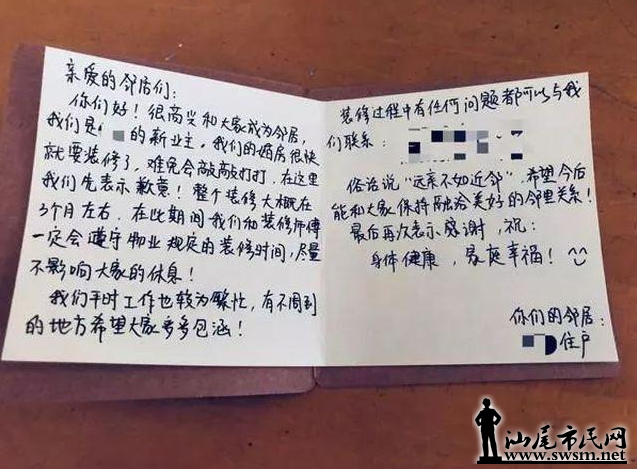 亲爱的邻居们：
你们好！很高兴和大家成为邻居，
我们是 的新业主，我们的婚房很快
就要装修了，难免会敲敲打打，在这里
我们先表示歉意！整个装修大概在
3个月左右．在此期间我们和装修师傅
一定会遵守物业规定的装修时间，尽量
不影响大家的休息！
我们平时工作也较为繁忙，有不周到
的地方希望大家多多包涵！
装修过程中有任何问题都可以与我
们联系：
俗话说“远亲不如近邻”，希望今后
能和大家保持融洽美好的邻里关系！
最后再次表示感谢，祝：
身体健康，家庭幸福！
你们的邻居：
住户
汕尾市民网
www.swsm.net